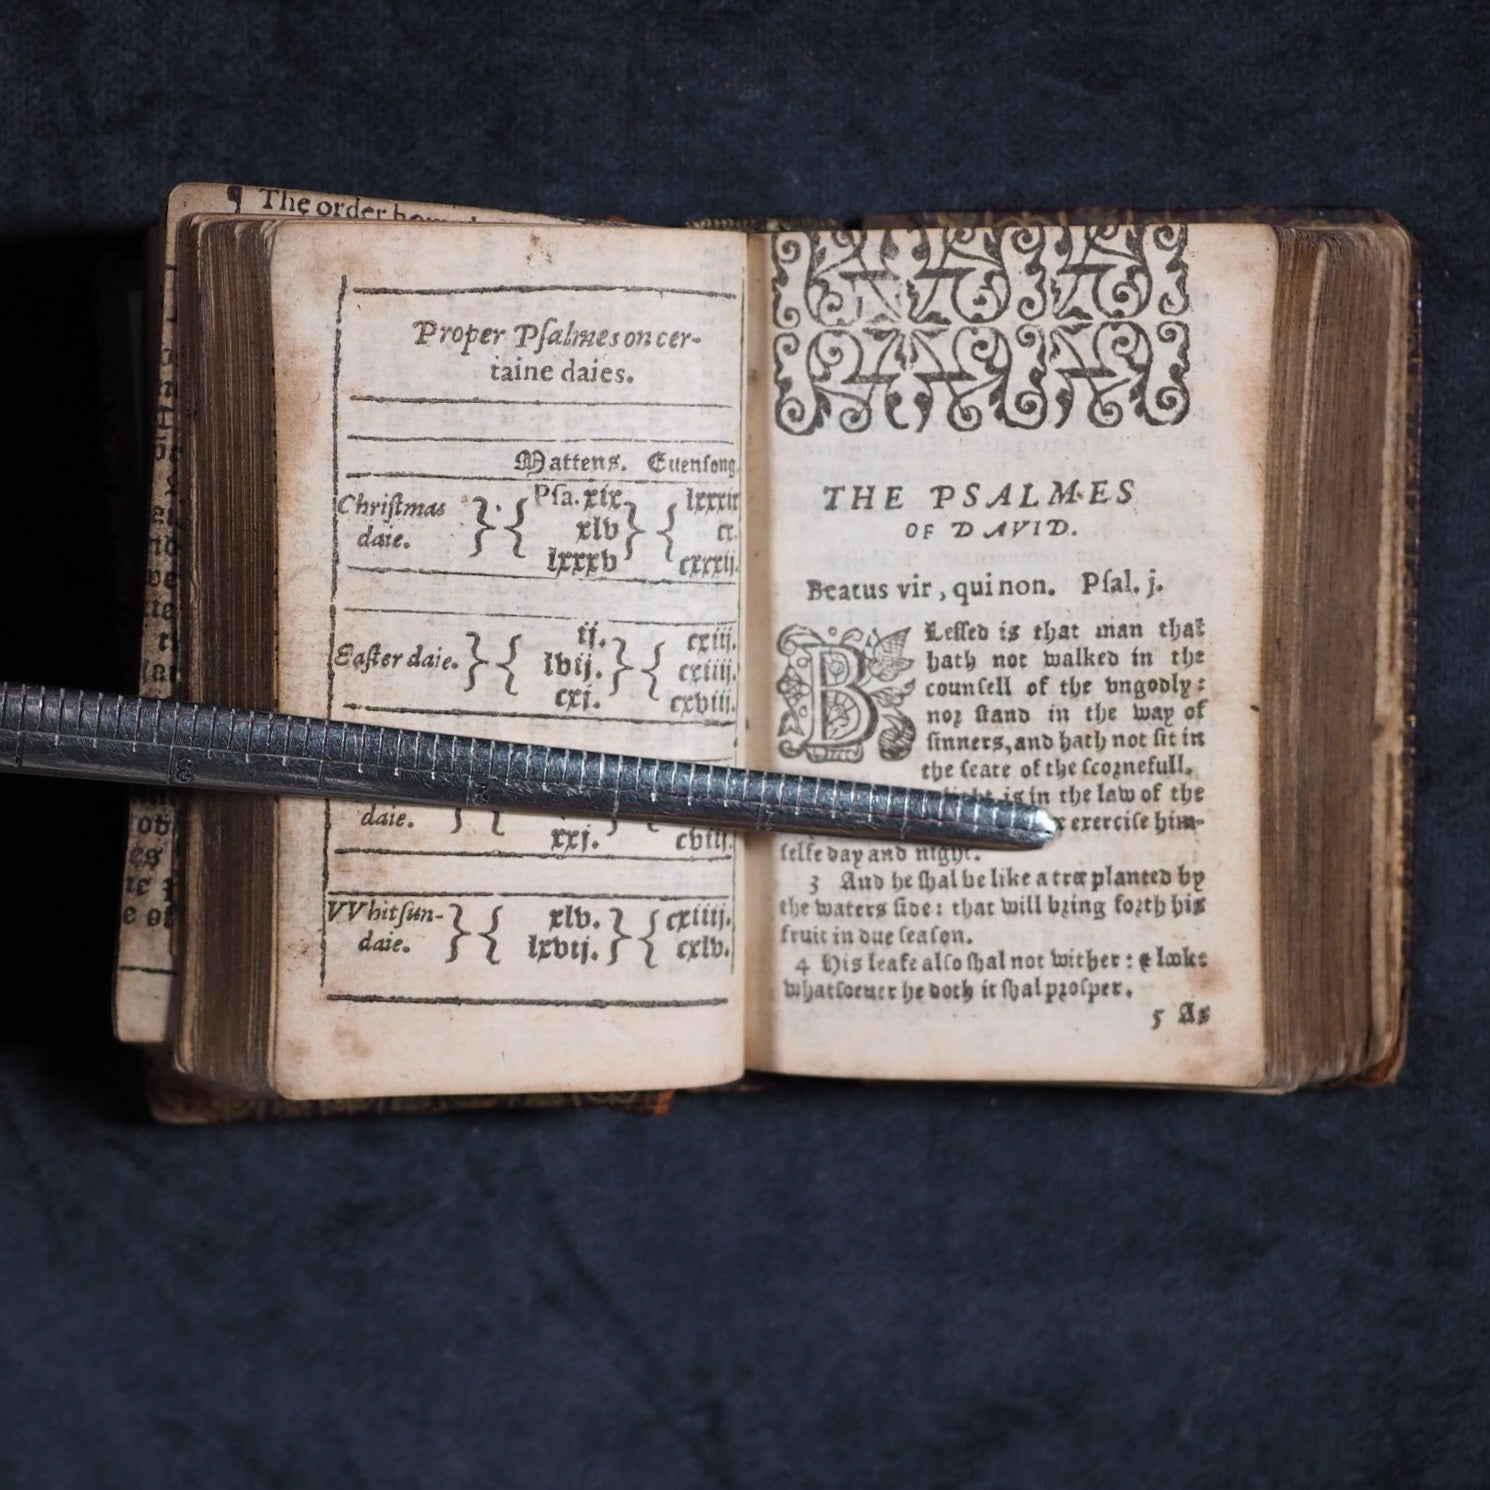 The order how
Proper Pſalmes on cer-
taine daies.
Mattens. Euenſong
Chriſtmas
daie.
Pſa. xix
xlv
lxxxv
lxxxix
cx.
cxxxij.
Eaſter daie.
ij.
lvij.
cxj.
cxiij.
cxiiij.
cxviij.
daie.
xxj.
cviij.
VVhitſun-
daie.
xlv.
lxvij.
cxiiij.
cxlv.
THE PSALMES
OF DAVID.
Beatus vir, qui non. Pſal. j.
BLeſſed is that man that
hath not walked in the
counſell of the vngodly:
nor ſtand in the way of
ſinners, and hath not ſit in
the ſeate of the ſcornefull.
is in the law of the
exerciſe him-
ſelfe day and night.
3 And he ſhal be like a tree planted by
the waters ſide: that will bring forth his
fruit in due ſeaſon.
4 His leafe alſo ſhal not wither: & looke
whatſoeuer he doth it ſhal proſper.
5 As